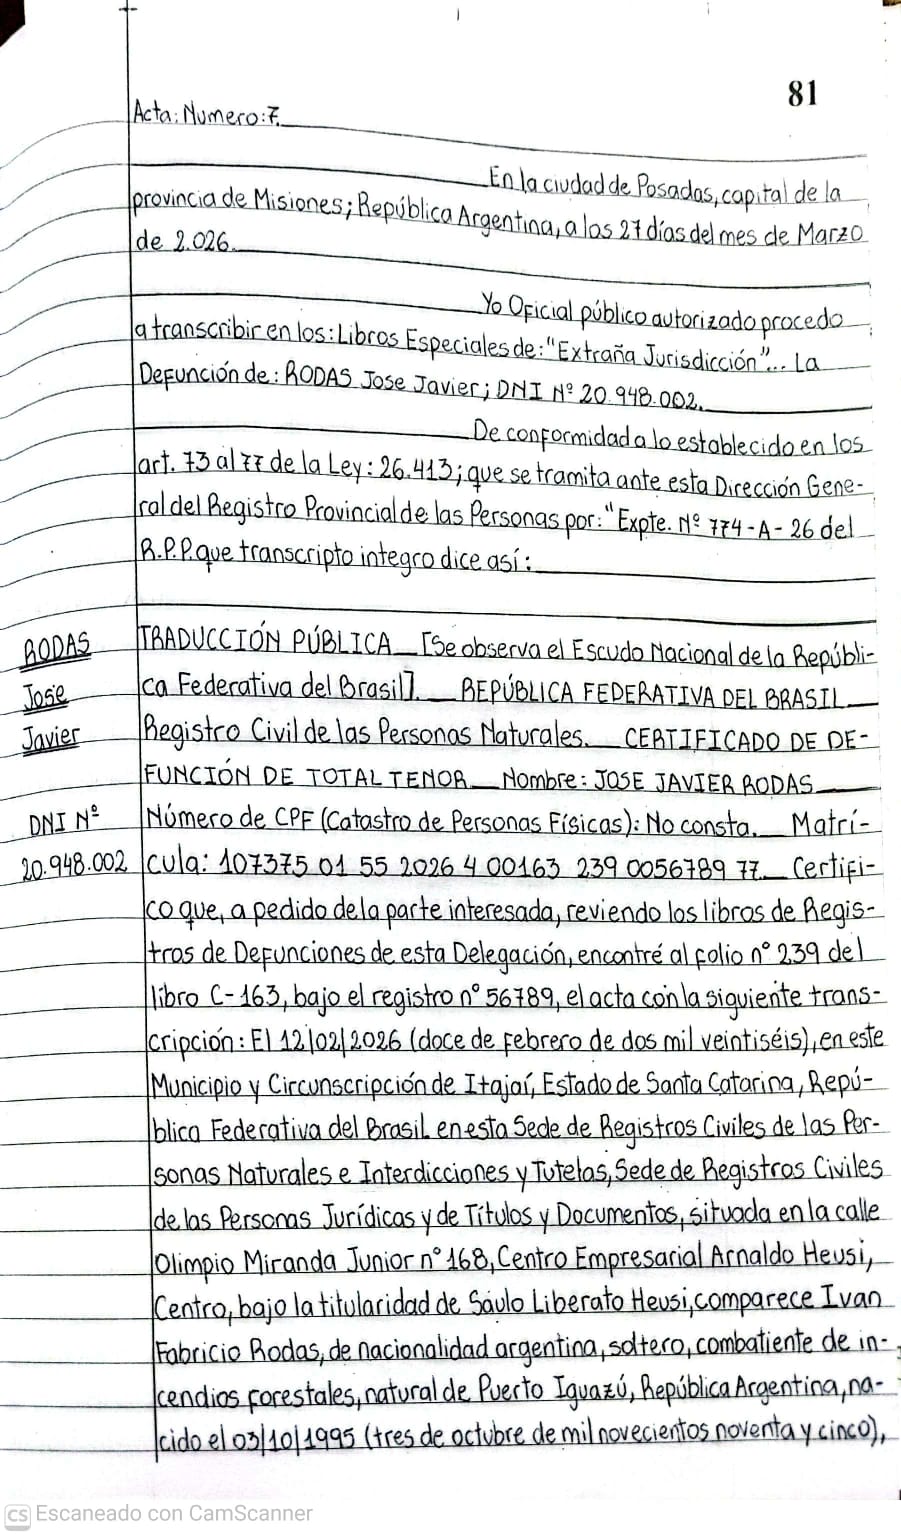 81
Acta: Numero: 7.
En la ciudad de Posadas, capital de la
provincia de Misiones; República Argentina, a los 27 días del mes de Marzo
de 2.026.
Yo Oficial público autorizado procedo
a transcribir en los: Libros Especiales de: "Extraña Jurisdicción"... La
Defunción de: RODAS Jose Javier; DNI Nº 20.948.002.
De conformidad a lo establecido en los
art. 73 al 77 de la Ley: 26.413; que se tramita ante esta Dirección Gene-
ral del Registro Provincial de las Personas por: "Expte. Nº 774-A-26 del
R.P.P. que transcripto integro dice así:
RODAS
Jose
Javier
DNI Nº
20.948.002
TRADUCCIÓN PÚBLICA [Se observa el Escudo Nacional de la Repúbli-
ca Federativa del Brasil]. REPÚBLICA FEDERATIVA DEL BRASIL
Registro Civil de las Personas Naturales. CERTIFICADO DE DE-
FUNCIÓN DE TOTAL TENOR Nombre: JOSE JAVIER RODAS
Número de CPF (Catastro de Personas Físicas): No consta. Matrí-
cula: 107375 01 55 2026 4 00163 239 0056789 77. Certifi-
co que, a pedido de la parte interesada, reviendo los libros de Regis-
tros de Defunciones de esta Delegación, encontré al folio nº 239 del
libro C-163, bajo el registro nº 56789, el acta con la siguiente trans-
cripción: El 12/02/2026 (doce de febrero de dos mil veintiséis), en este
Municipio y Circunscripción de Itajaí, Estado de Santa Catarina, Repú-
blica Federativa del Brasil en esta Sede de Registros Civiles de las Per-
sonas Naturales e Interdicciones y Tutelas, Sede de Registros Civiles
de las Personas Jurídicas y de Títulos y Documentos, situada en la calle
Olimpio Miranda Junior nº 168, Centro Empresarial Arnaldo Heusi,
Centro, bajo la titularidad de Saulo Liberato Heusi, comparece Ivan
Fabricio Rodas, de nacionalidad argentina, soltero, combatiente de in-
cendios forestales, natural de Puerto Iguazú, República Argentina, na-
cido el 03/10/1995 (tres de octubre de mil novecientos noventa y cinco),
CS Escaneado con CamScanner